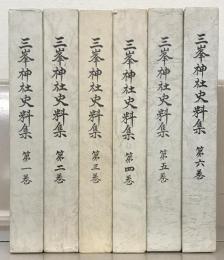 三峯神社史料集 第一巻
三峯神社史料集 第二巻
三峯神社史料集 第三巻
三峯神社史料集 第四巻
三峯神社史料集 第五巻
三峯神社史料集 第六巻